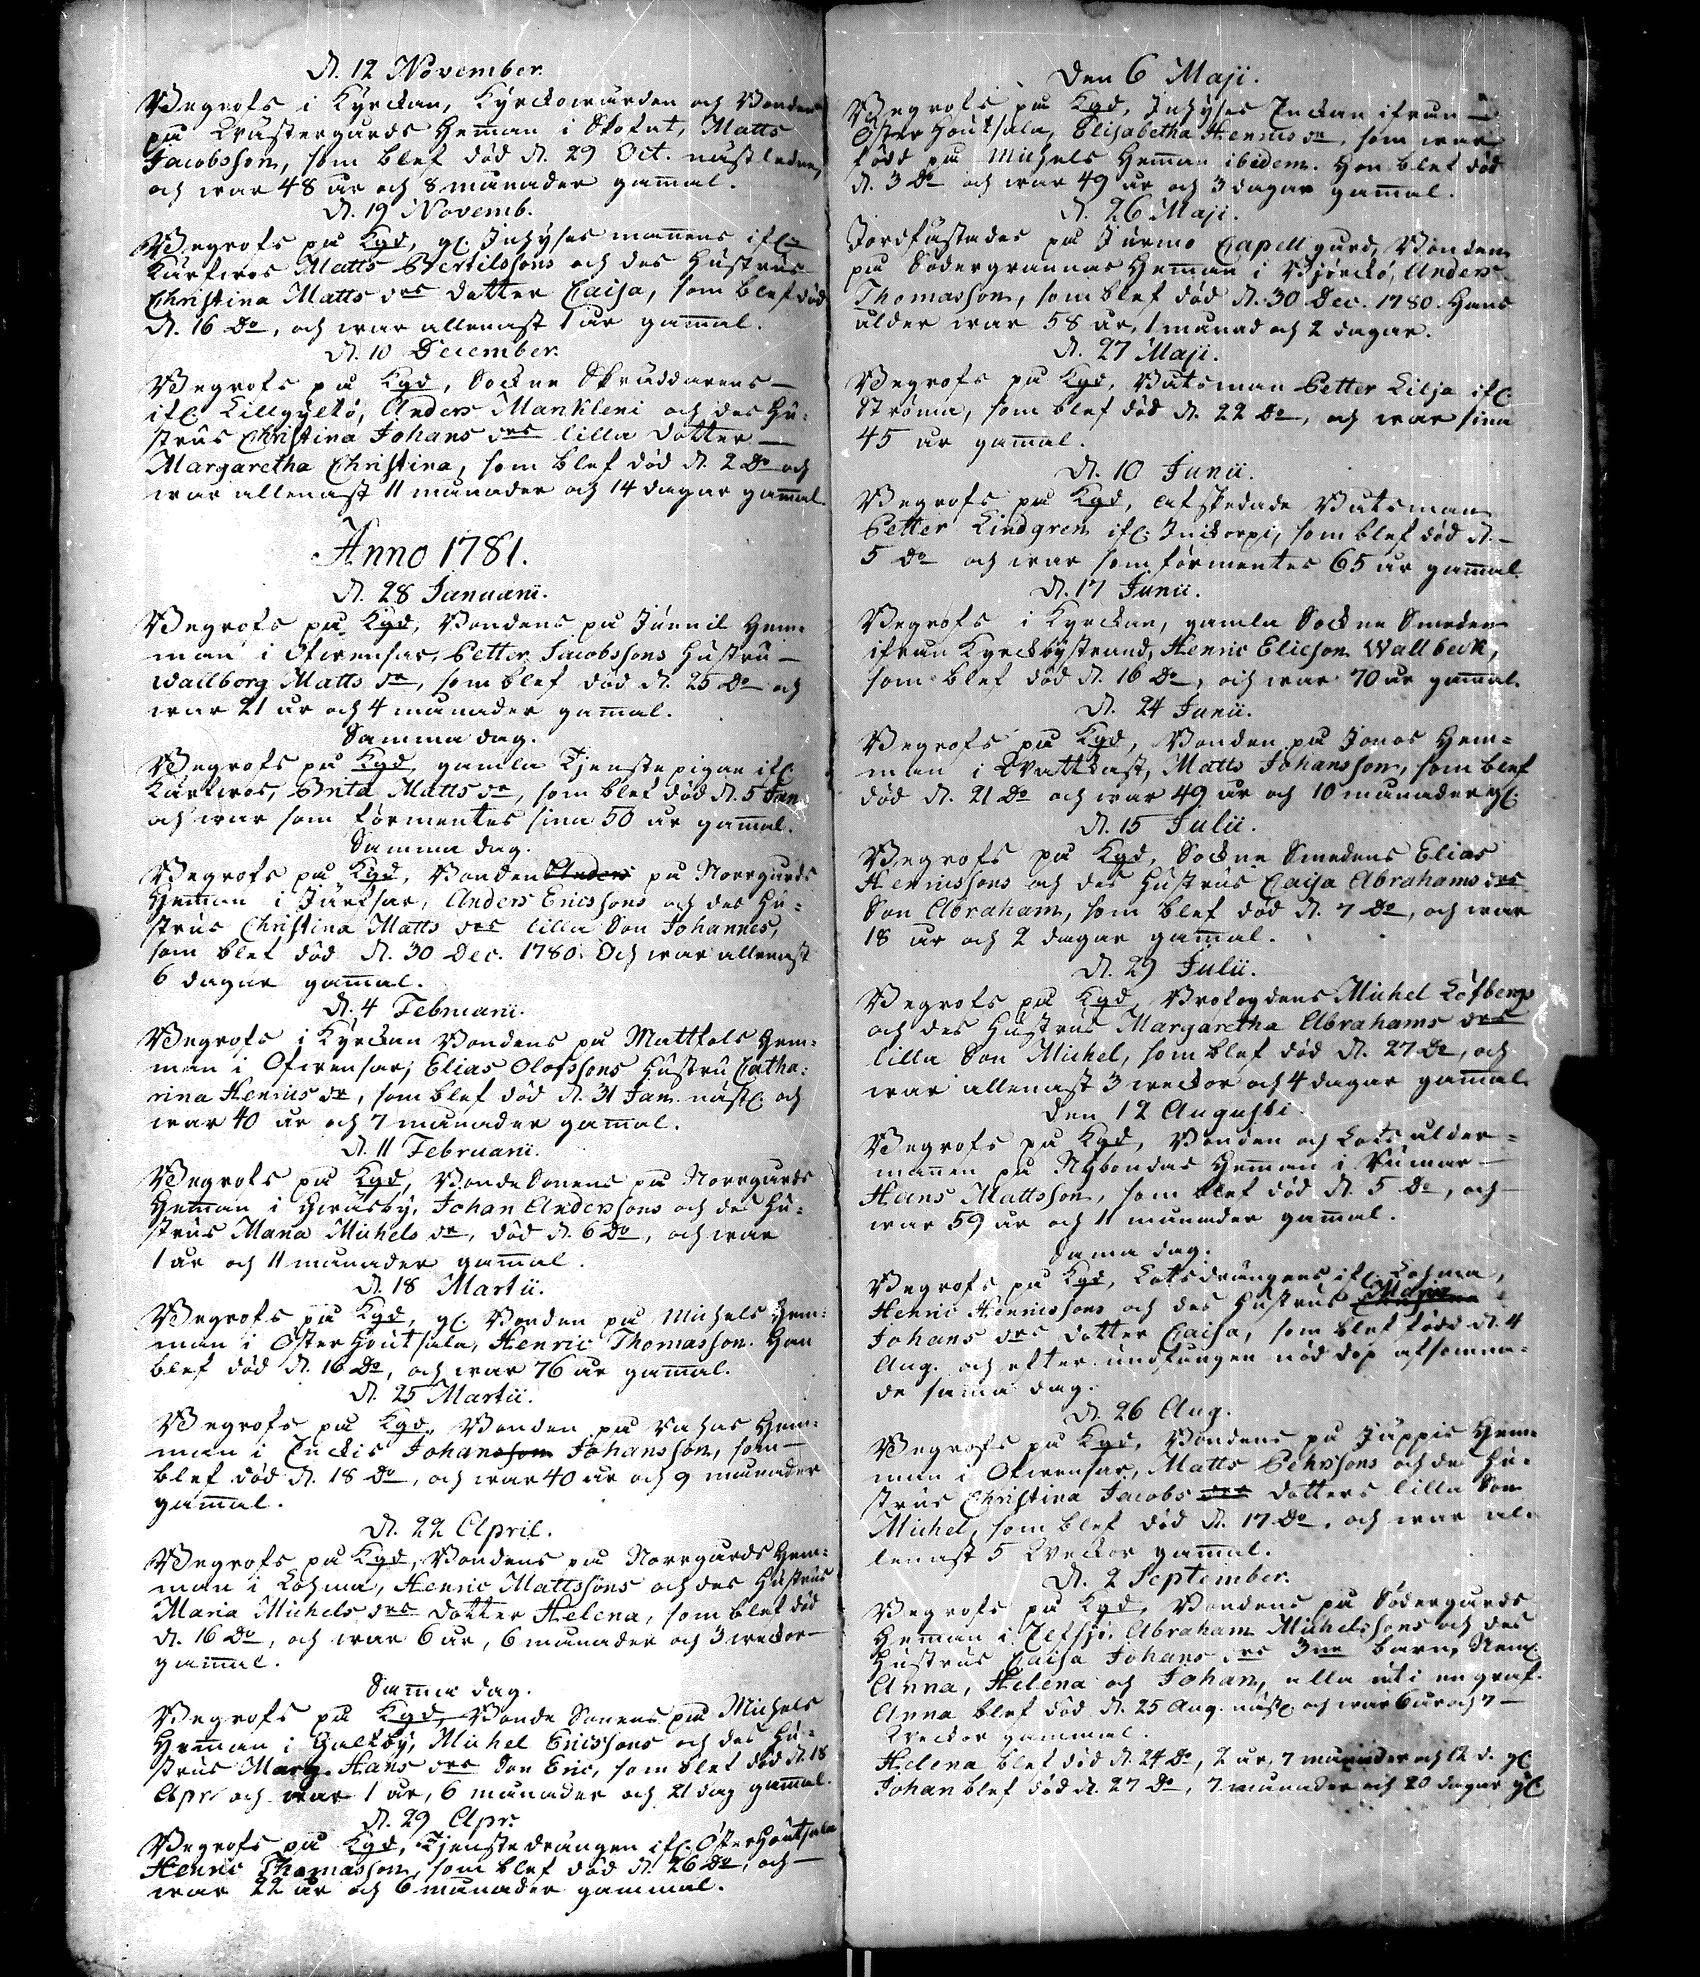 D. 12 November.
Begrofs i Kyrckan, Kyrckowärden och Bonden
på Wästergårds Hem̄an i Skofat, Matts
Jacobsson, som blef död d. 29 Oct. nästledne,
och war 48 år och 8 månader gam̄al.
D. 19 Novemb.
Begrofs på Kgd, gl. Inhyses man̄ens ifl.
Kärkeros Matts Bertilssons och des Hustrus
Christina Matts drs dotter Caisa, som blef död
d. 16 Do, och war allenast 1 år gam̄al.
D. 10 December.
Begrofs på Kgd, Sockne Skräddarens
ifl. Lillgyltö, Anders Mankleni och des Hu-
strus Christina Johans drs lilla dotter
Margaretha Christina, som blef död d. 2 Do och
war allenast 11 månader och 14 dagar gam̄al.
Anno 1781.
D. 28 Januarii.
Begrofs på Kgd, Bondens på Jännil Hem-
man i Ofwensar, Petter Jacobssons Hustru
Wallborg Matts dr, som blef död d. 25 Do och
war 21 år och 4 månader gam̄al.
Samma dag.
Begrofs på Kgd gamla Tjenstepigan ifl.
Kärkeros, Brita Matts dr, som blef död d. 5 Jan.
och war som förmentes sina 50 år gam̄al.
Samma dag.
Begrofs på Kgd, Bonden Anders på Norrgårds
Hem̄an i Järfsar, Anders Ericssons och des Hu-
strus Christina Matts drs lilla Son Johannes,
som blef död d. 30 Dec. 1780. Och war allenast
6 dagar gam̄al.
D. 4 Februarii.
Begrofs i Kyrckan Bondens på Mattfols Hem-
man i Ofwensar, Elias Olofssons Hustru Catha-
rina Henrics dr, som blef död d. 31 Jan. nästl. och
war 40 år och 7 månader gam̄al.
D. 11 Februarii.
Begrofs på Kgd, Bonde Sonens på Norrgårds
Hem̄an i Hwäsby, Johan Anderssons och des Hu-
strus Maria Michels dr, död d. 6 Do, och war
1 år och 11 månader gam̄al.
D. 18 Martii.
Begrofs på Kgd, gl. Bonden på Michels Hem-
man i Öster Houtsala, Henric Thomasson. Han
blef död d. 16 Do, och war 76 år gam̄al.
D. 25 Martii.
Begrofs på Kgd, Bonden på Rahas Hem-
man i Enckis Johansson Johansson, som
blef död d. 18 Do, och war 40 år och 9 månader
gam̄al.
D. 22 April.
Begrofs på Kgd, Bondens på Norrgårds Hem-
man i Lohma, Henric Mattssons och des Hustrus
Maria Michels drs dotter Helena, som blef död
d. 16 Do, och war 6 år, 6 månader och 3 weckor
gam̄al.
Sam̄a dag.
Begrofs på Kgd Bonde Sonens på Michels
Hem̄an i Galtby, Michel Ericssons och des Hu-
strus Marg. Hans drs Son Eric, som blef död d. 18
Apr. och war 1 år, 6 månader och 21 dag gam̄al.
D. 29 Apr.
Begrofs på Kgd, Tjenstedrängen ifl. Öster Houtsala
Henric Thomasson, som blef död d. 26 Do, och
war 22 år och 6 månader gammal.
Den 6 Maji.
Begrofs på Kgd, Inhyses Enckan ifrån
Öster Houtsala, Elisabetha Henrics dr, som war
född på Michels Hem̄an ibidem. Hon blef död
d. 3 Do och war 49 år och 3 dagar gam̄al.
D. 26 Maji.
Jordfästades på Jurmo Capell gård, Bonden
på Södergrannas Hem̄an i Björckö, Anders
Thomasson, som blef död d. 30 Dec. 1780. Hans
ålder war 58 år, 1 månad och 2 dagar.
D. 27 Maji.
Begrofs på Kgd, Båtsman Petter Lilja ifl.
Ströma, som blef död d. 22 Do, och war sina
45 år gam̄al.
D. 10 Junii.
Begrofs på Kgd, afskedade Båtsman
Petter Lindgren ifl. Inickorpi, som blef död d.
5 Do och war som förmentes 65 år gam̄al.
D. 17 Junii.
Begrofs i Kyrckan, gamla Sockne Smeden
ifrån Kyrckbystrand, Henric Elieson Wallbeck,
som blef död d. 16 Do, och war 70 år gam̄al.
D. 24 Junii.
Begrofs på Kgd, Bonden på Jonas Hem-
man i Wattkast, Matts Johansson, som blef
död d. 21 Do och war 49 år och 10 månader gl.
D. 15 Julii.
Begrofs på Kgd, Sockne Smedens Elias
Henricssons och des Hustrus Caisa Abrahams drs
Son Abraham, som blef död d. 7 Do, och war
18 år och 2 dagar gam̄al.
D. 29 Julii.
Begrofs på Kgd, Brofogdens Michel Löfbergs
och des Hustrus Margaretha Abrahams drs
lilla Son Michel, som blef död d. 27 Do, och
war allenast 3 weckor och 4 dagar gam̄al.
Den 12 Augusti
Begrofs på Kgd, Bonden och Lots ålder-
man̄en på Nybondas Hem̄an i Rumar
Hans Mattsson, som blef död d. 5 Do, och
war 59 år och 11 månader gam̄al.
Sam̄a dag.
Begrofs på Kgd, Lotsdrängens ifl. Lohma,
Henric Henricssons och des Hustrus Maria
Johans drs dotter Caisa, som blef född d. 4
Aug. och efter undfången nöd döp afsomna-
de sam̄a dag.
D. 26 Aug.
Begrofs på Kgd, Bondens på Jäppis Hem-
man i Ofwensar, Matts Pehrssons och des Hu-
strus Christina Jacobs drs dotters lilla Son
Michel, som blef död d. 17 Do, och war al-
lenast 5 Weckor gam̄al.
D. 2 September.
Begrofs på Kgd, Bondens på Södergårds
Hem̄an i Retsjö, Abraham Michelssons och des
Hustrus Caisa Johans drs 3ne barn, Neml.
Anna, Helena och Johan, alla uti en graf.
Anna blef död d. 25 Aug. nästl. och war 6 år och 7
Weckor gammal.
Helena blef död d. 24 Do, 2 år, 7 månader och 12 d. gl.
Johan blef död d. 27 Do, 7 månader och 20 dagar gl.